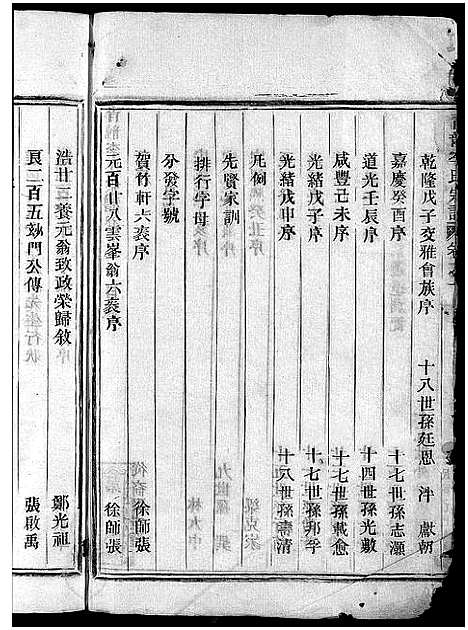 乾隆戊子交雅會族序 十八世孫廷恩 泮 獻朝
嘉慶癸酉序 十七世孫志灝
道光壬辰序 十四世孫光數
咸豐己未序 十七世孫載愈
光緒戊子序 十七世孫邦孚
光緒戊申序 十八世孫壽清
凡例
先賢家訓
排行字母
分發字號
賀竹軒六袠序 徐師張
元百廿八雲峯翁六袠序 徐師張
浩廿三養元翁致政榮歸敘 鄒光祖
良二百五效門公傳 張啟禹